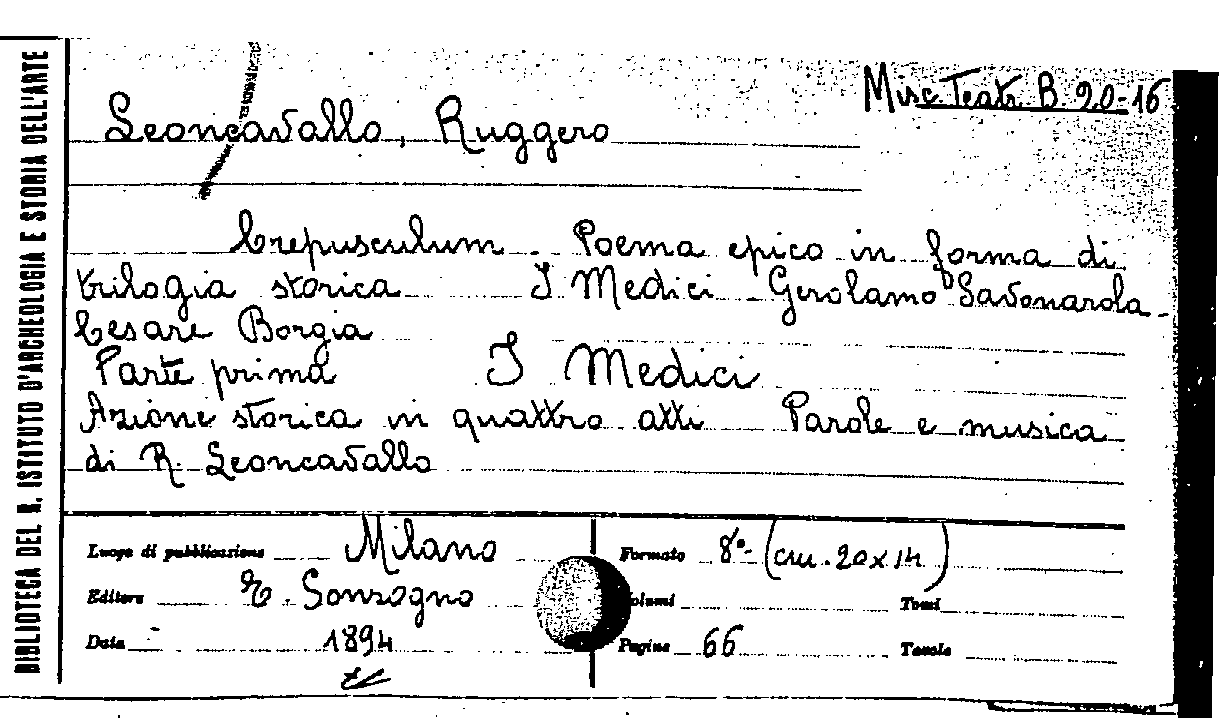 BIBLIOTECA DEL R. ISTITUTO D'ARCHEOLOGIA E STORIA DELL'ARTE
Misc. Teatr. B. 90-16
Leoncavallo, Ruggero
Crepusculum. Poema epico in forma di
trilogia storica I Medici Gerolamo Savonarola -
Cesare Borgia
Parte prima I Medici
Azione storica in quattro atti Parole e musica
di R. Leoncavallo
Luogo di pubblicazione Milano
Formato 8°- (cm. 20x14)
Editore E. Sonzogno
Volumi Tomi
Data 1894
Pagine 66 Tavole